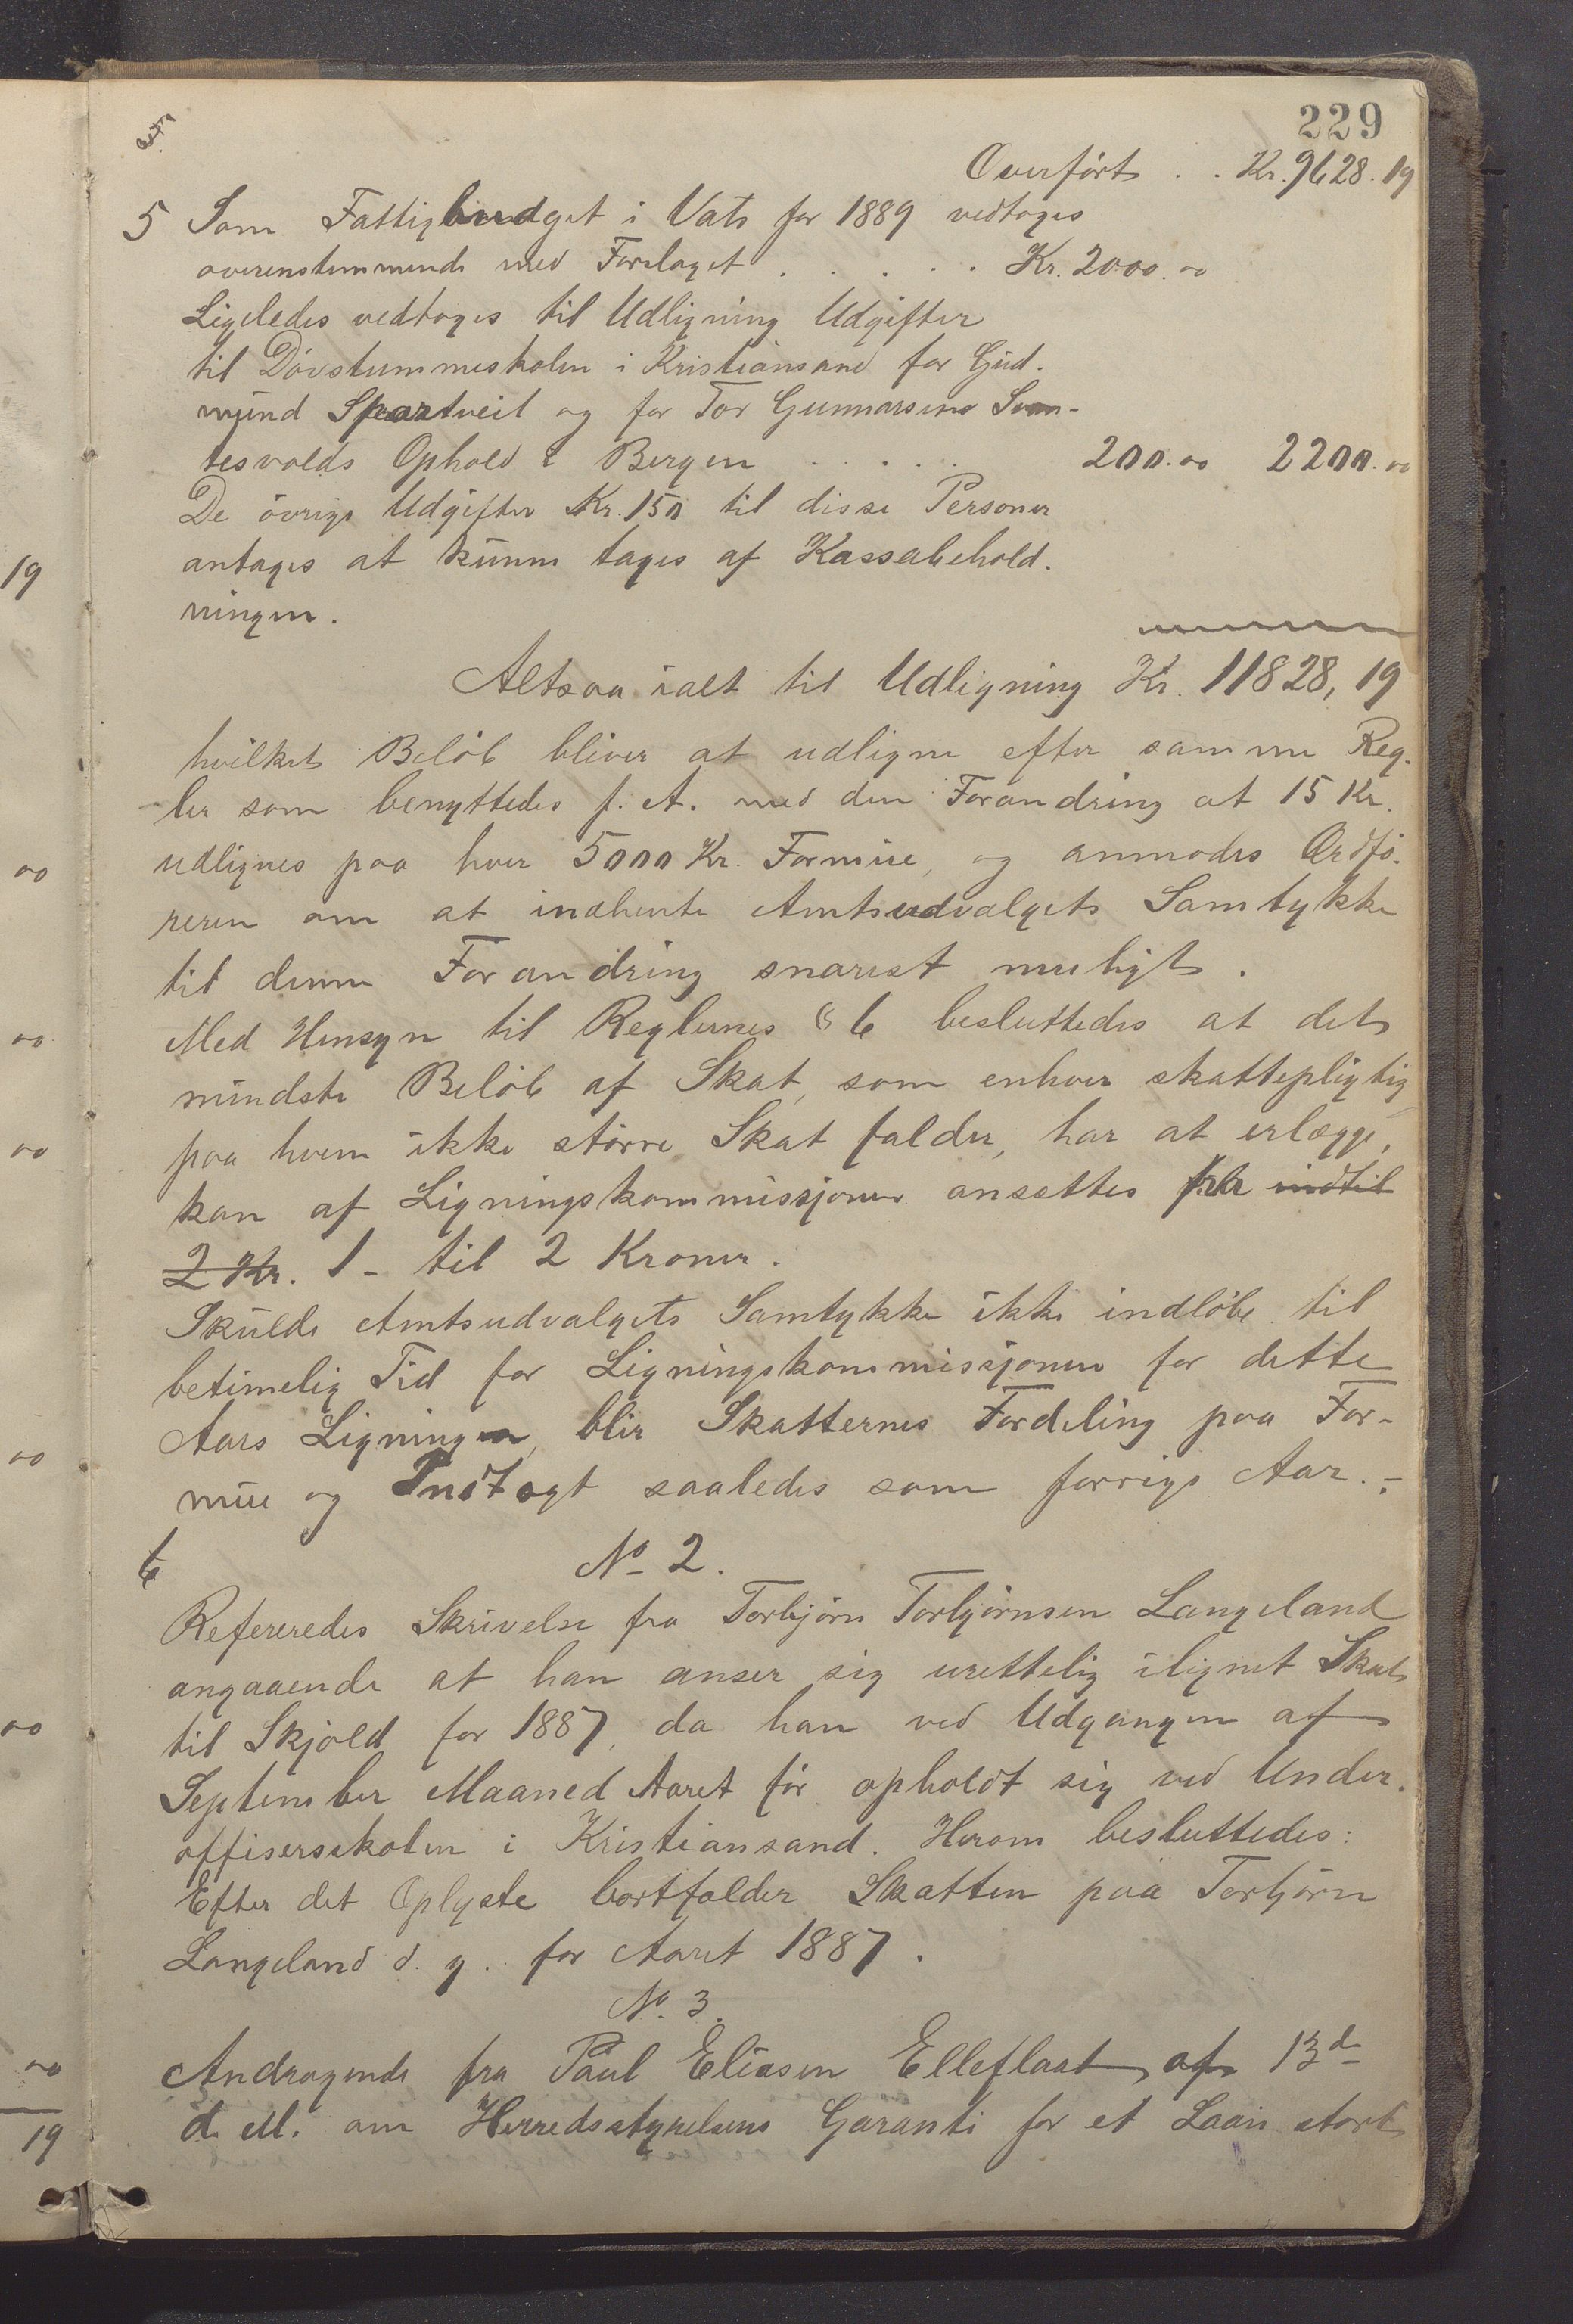 229
Overført . . Kr. 9628.19
5 Som Fattigbudget i Vats for 1889 vedtoges
overenstemmende med Forslaget . . . . . Kr. 2000.00
Ligeledes vedtoges til Udligning Udgifter
til Døvstummeskolen i Kristiansand for Gud-
mund Spartveit og for Tor Gunnarsens
tesvolds Ophold i Bergen . . . . . 200.00 2200.00
De øvrige Udgifter Kr. 150 til disse Personer
antages at kunne tages af Kassabehold-
ningen.
Altsaa ialt til Udligning Kr. 11828,19
hvilket Beløb bliver at udligne efter samme Reg-
ler som benyttedes f. A. med den Forandring at 15 Kr.
udlignes paa hver 5000 Kr. Formue, og anmodes Ordfø-
reren om at indhente Amtsudvalgets Samtykke
til denne Forandring snarest muligt.
Med Hensyn til Reglernes § 6 besluttedes at det
mindste Beløb af Skat, som enhver skattepligtig
paa hvem ikke større Skat falder, har at erlægge,
kan af Ligningskommissjonen ansættes fra indtil
2 Kr. 1 - til 2 Kroner.
Skulde Amtsudvalgets Samtykke ikke indløbe til
betimelig Tid for Ligningskommissjonen for dette
Aars Ligningen, blir Skatternes Fordeling paa For-
mue og Indtægt saaledes som forrige Aar. -
6 No 2.
Refereredes Skrivelse fra Torbjørn Torbjørnsen Langeland
angaaende at han anser sig urettelig ilignet Skat
til Skjold for 1887, da han ved Udgangen af
September Maaned Aaret før opholdt sig ved Under-
offisersskolen i Kristiansand. Herom besluttedes:
Efter det Oplyste bortfalder Skatten paa Torbjørn
Langeland d. y. for Aaret 1887.
No. 3.
Andragende fra Paul Eliasen Elleflaat af 13de
d. M. om Herredsstyrelsens Garanti for et Laan stort
19
00
00
00
00
00
00
19